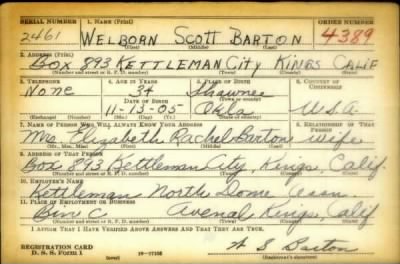 SERIAL NUMBER 1. NAME (Print) ORDER NUMBER
2461 WELBORN SCOTT BARTON 4389
(First) (Middle) (Last)
2. ADDRESS (Print)
BOX 893 KETTLEMAN City KINGS CALIF
(Number and street or R. F. D. number) (Town) (County) (State)
3. TELEPHONE 4. AGE IN YEARS 5. PLACE OF BIRTH 6. COUNTRY OF CITIZENSHIP
None 34 Shawnee
DATE OF BIRTH (Town or county)
11-13-05 Okla U.S.A.
(Exchange) (Number) (Mo.) (Day) (Yr.) (State or country)
7. NAME OF PERSON WHO WILL ALWAYS KNOW YOUR ADDRESS 8. RELATIONSHIP OF THAT PERSON
Mrs. Elizabeth Rachel Barton wife
(Mr., Mrs., Miss) (First) (Middle) (Last)
9. ADDRESS OF THAT PERSON
Box 893 Kettleman City, Kings, Calif.
(Number and street or R. F. D. number) (Town) (County) (State)
10. EMPLOYER'S NAME
Kettleman North Dome Assn
11. PLACE OF EMPLOYMENT OR BUSINESS
Avenal Kings, Calif
(Number and street or R. F. D. number) (Town) (County) (State)
I AFFIRM THAT I HAVE VERIFIED ABOVE ANSWERS AND THAT THEY ARE TRUE.
REGISTRATION CARD
D. S. S. Form 1 W S Barton
(Registrant's signature)